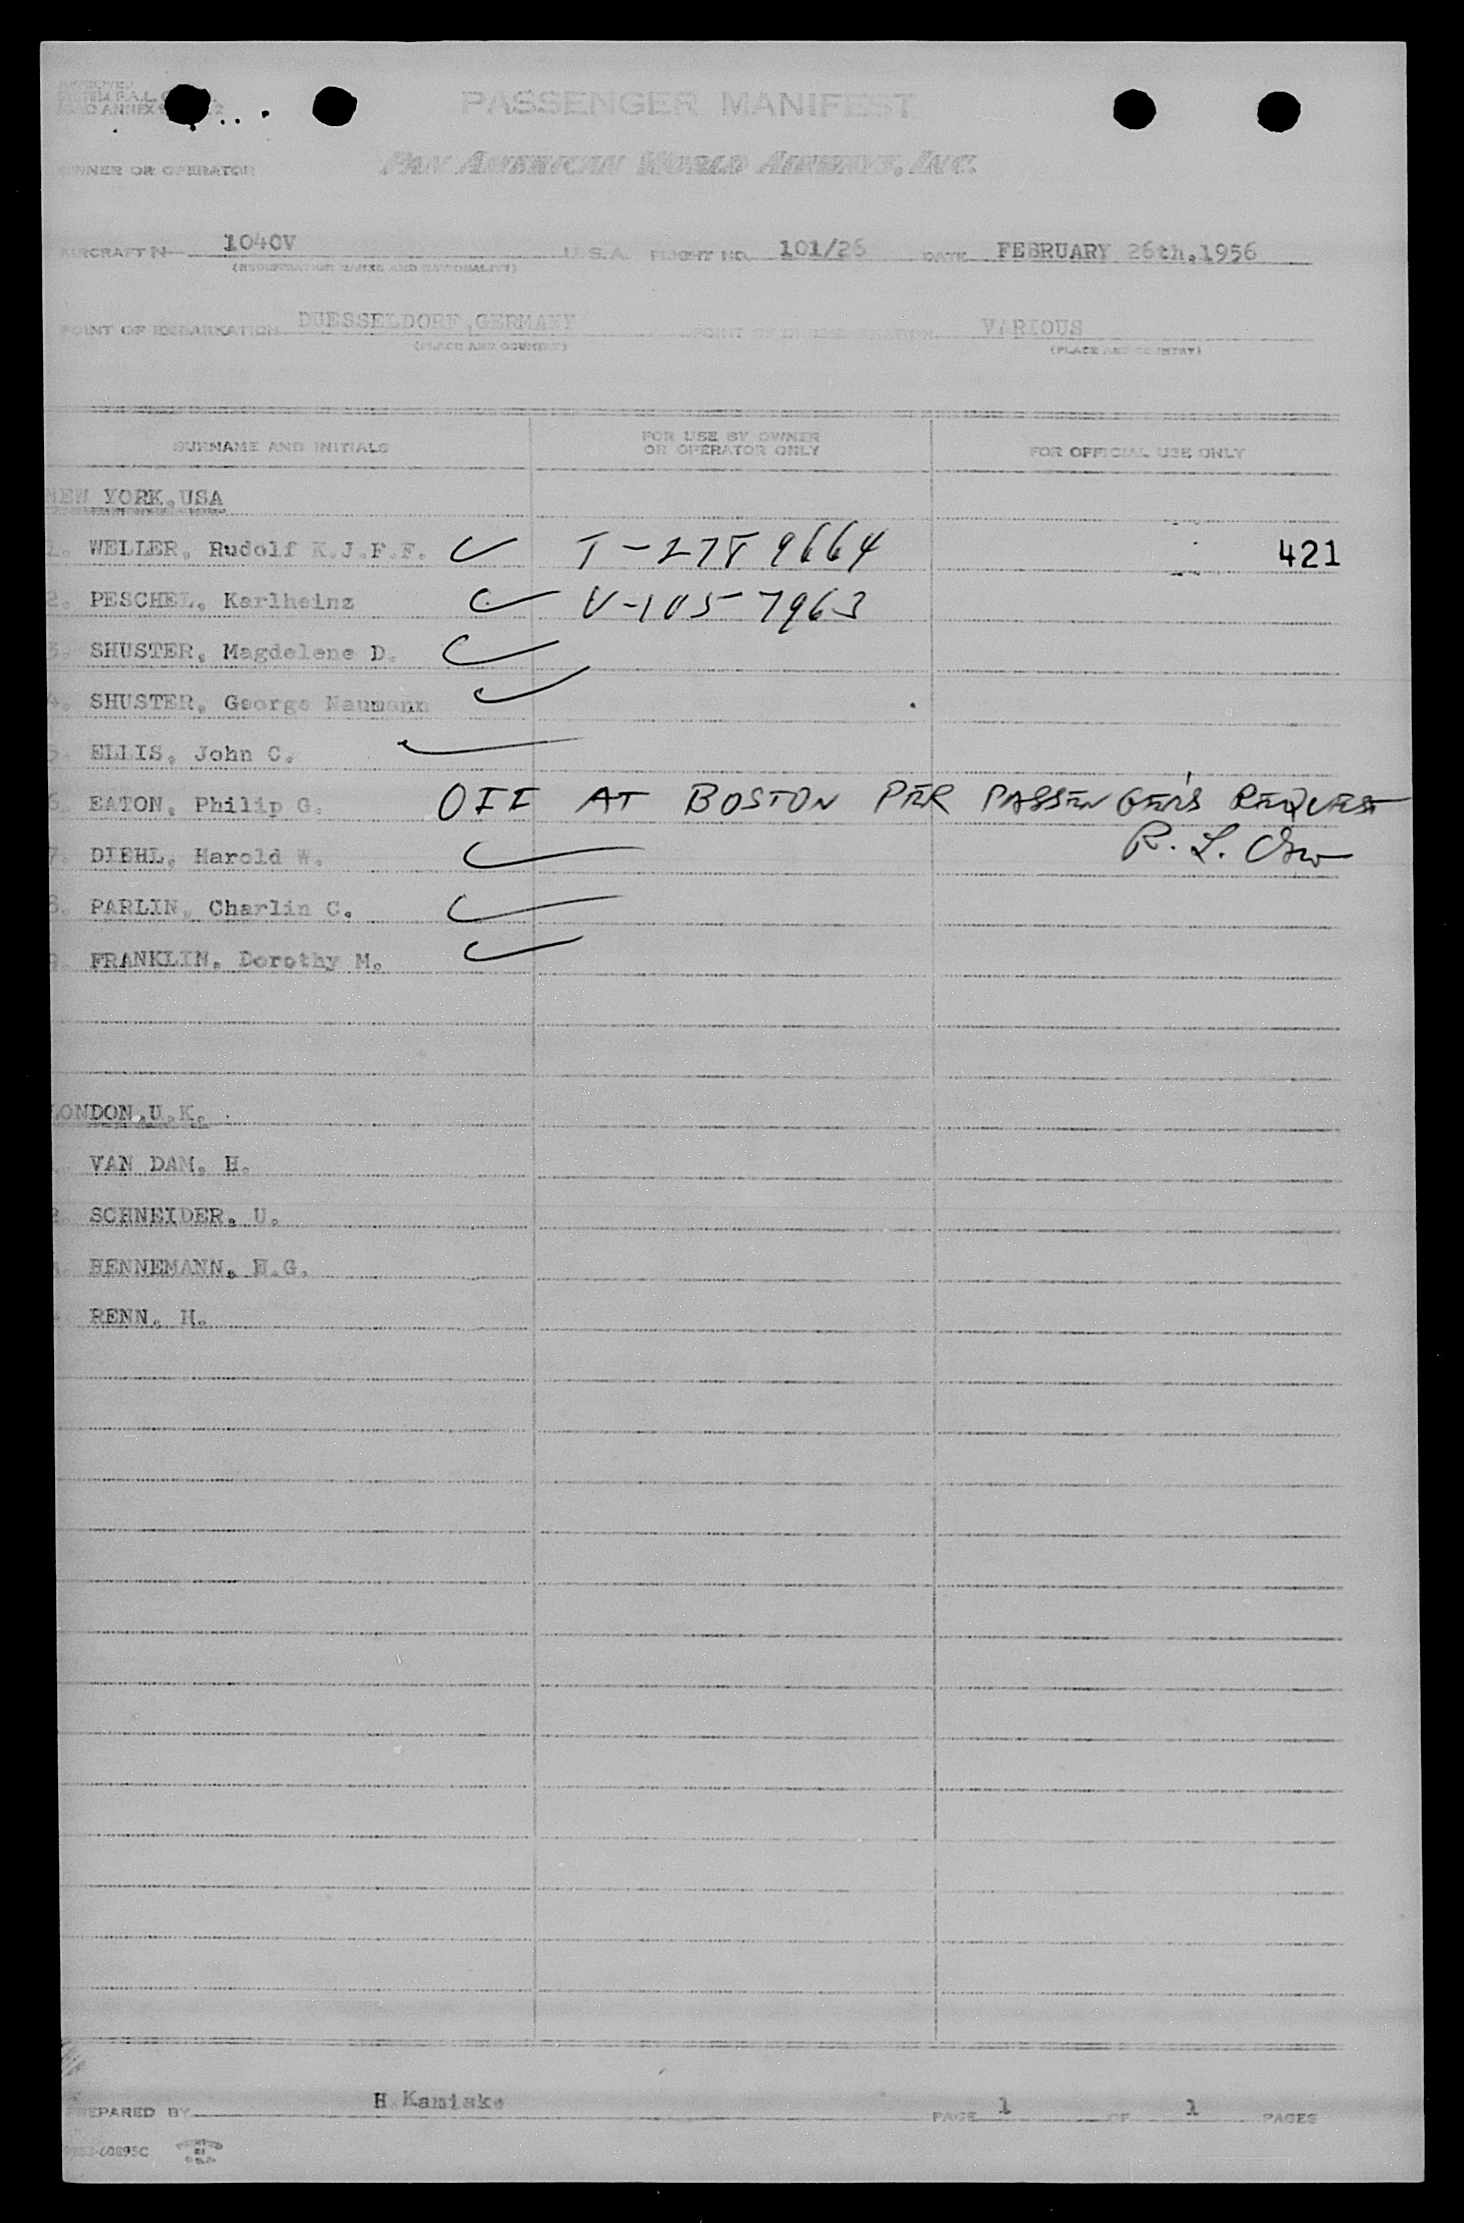 PASSENGER MANIFEST
OWNER OR OPERATOR PAN AMERICAN WORLD AIRWAYS, INC.
AIRCRAFT N 1040V U.S.A. FLIGHT NO. 101/26 DATE FEBRUARY 26th,1956
(REGISTRATION MARKS AND NATIONALITY)
POINT OF EMBARKATION DUESSELDORF,GERMANY POINT OF DISEMBARKATION VARIOUS
(PLACE AND COUNTRY) (PLACE AND COUNTRY)
SURNAME AND INITIALS FOR USE BY OWNER OR OPERATOR ONLY FOR OFFICIAL USE ONLY
NEW YORK,USA
1. WELLER, Rudolf K.J.F.F. T-2789664 421
2. PESCHEL, Karlheinz V-1057963
3. SHUSTER, Magdelene D.
4. SHUSTER, George Naumann
5. ELLIS, John C.
6. EATON, Philip G. OFF AT BOSTON PER PASSENGER'S REQUEST
R. L.
7. DIEHL, Harold W.
8. PARLIN, Charlin C.
9. FRANKLIN, Dorothy M.
LONDON,U.K.
VAN DAM, H.
2. SCHNEIDER, U.
HENNEMANN, H.G.
RENN, H.
PREPARED BY H Kamiske PAGE 1 OF 1 PAGES